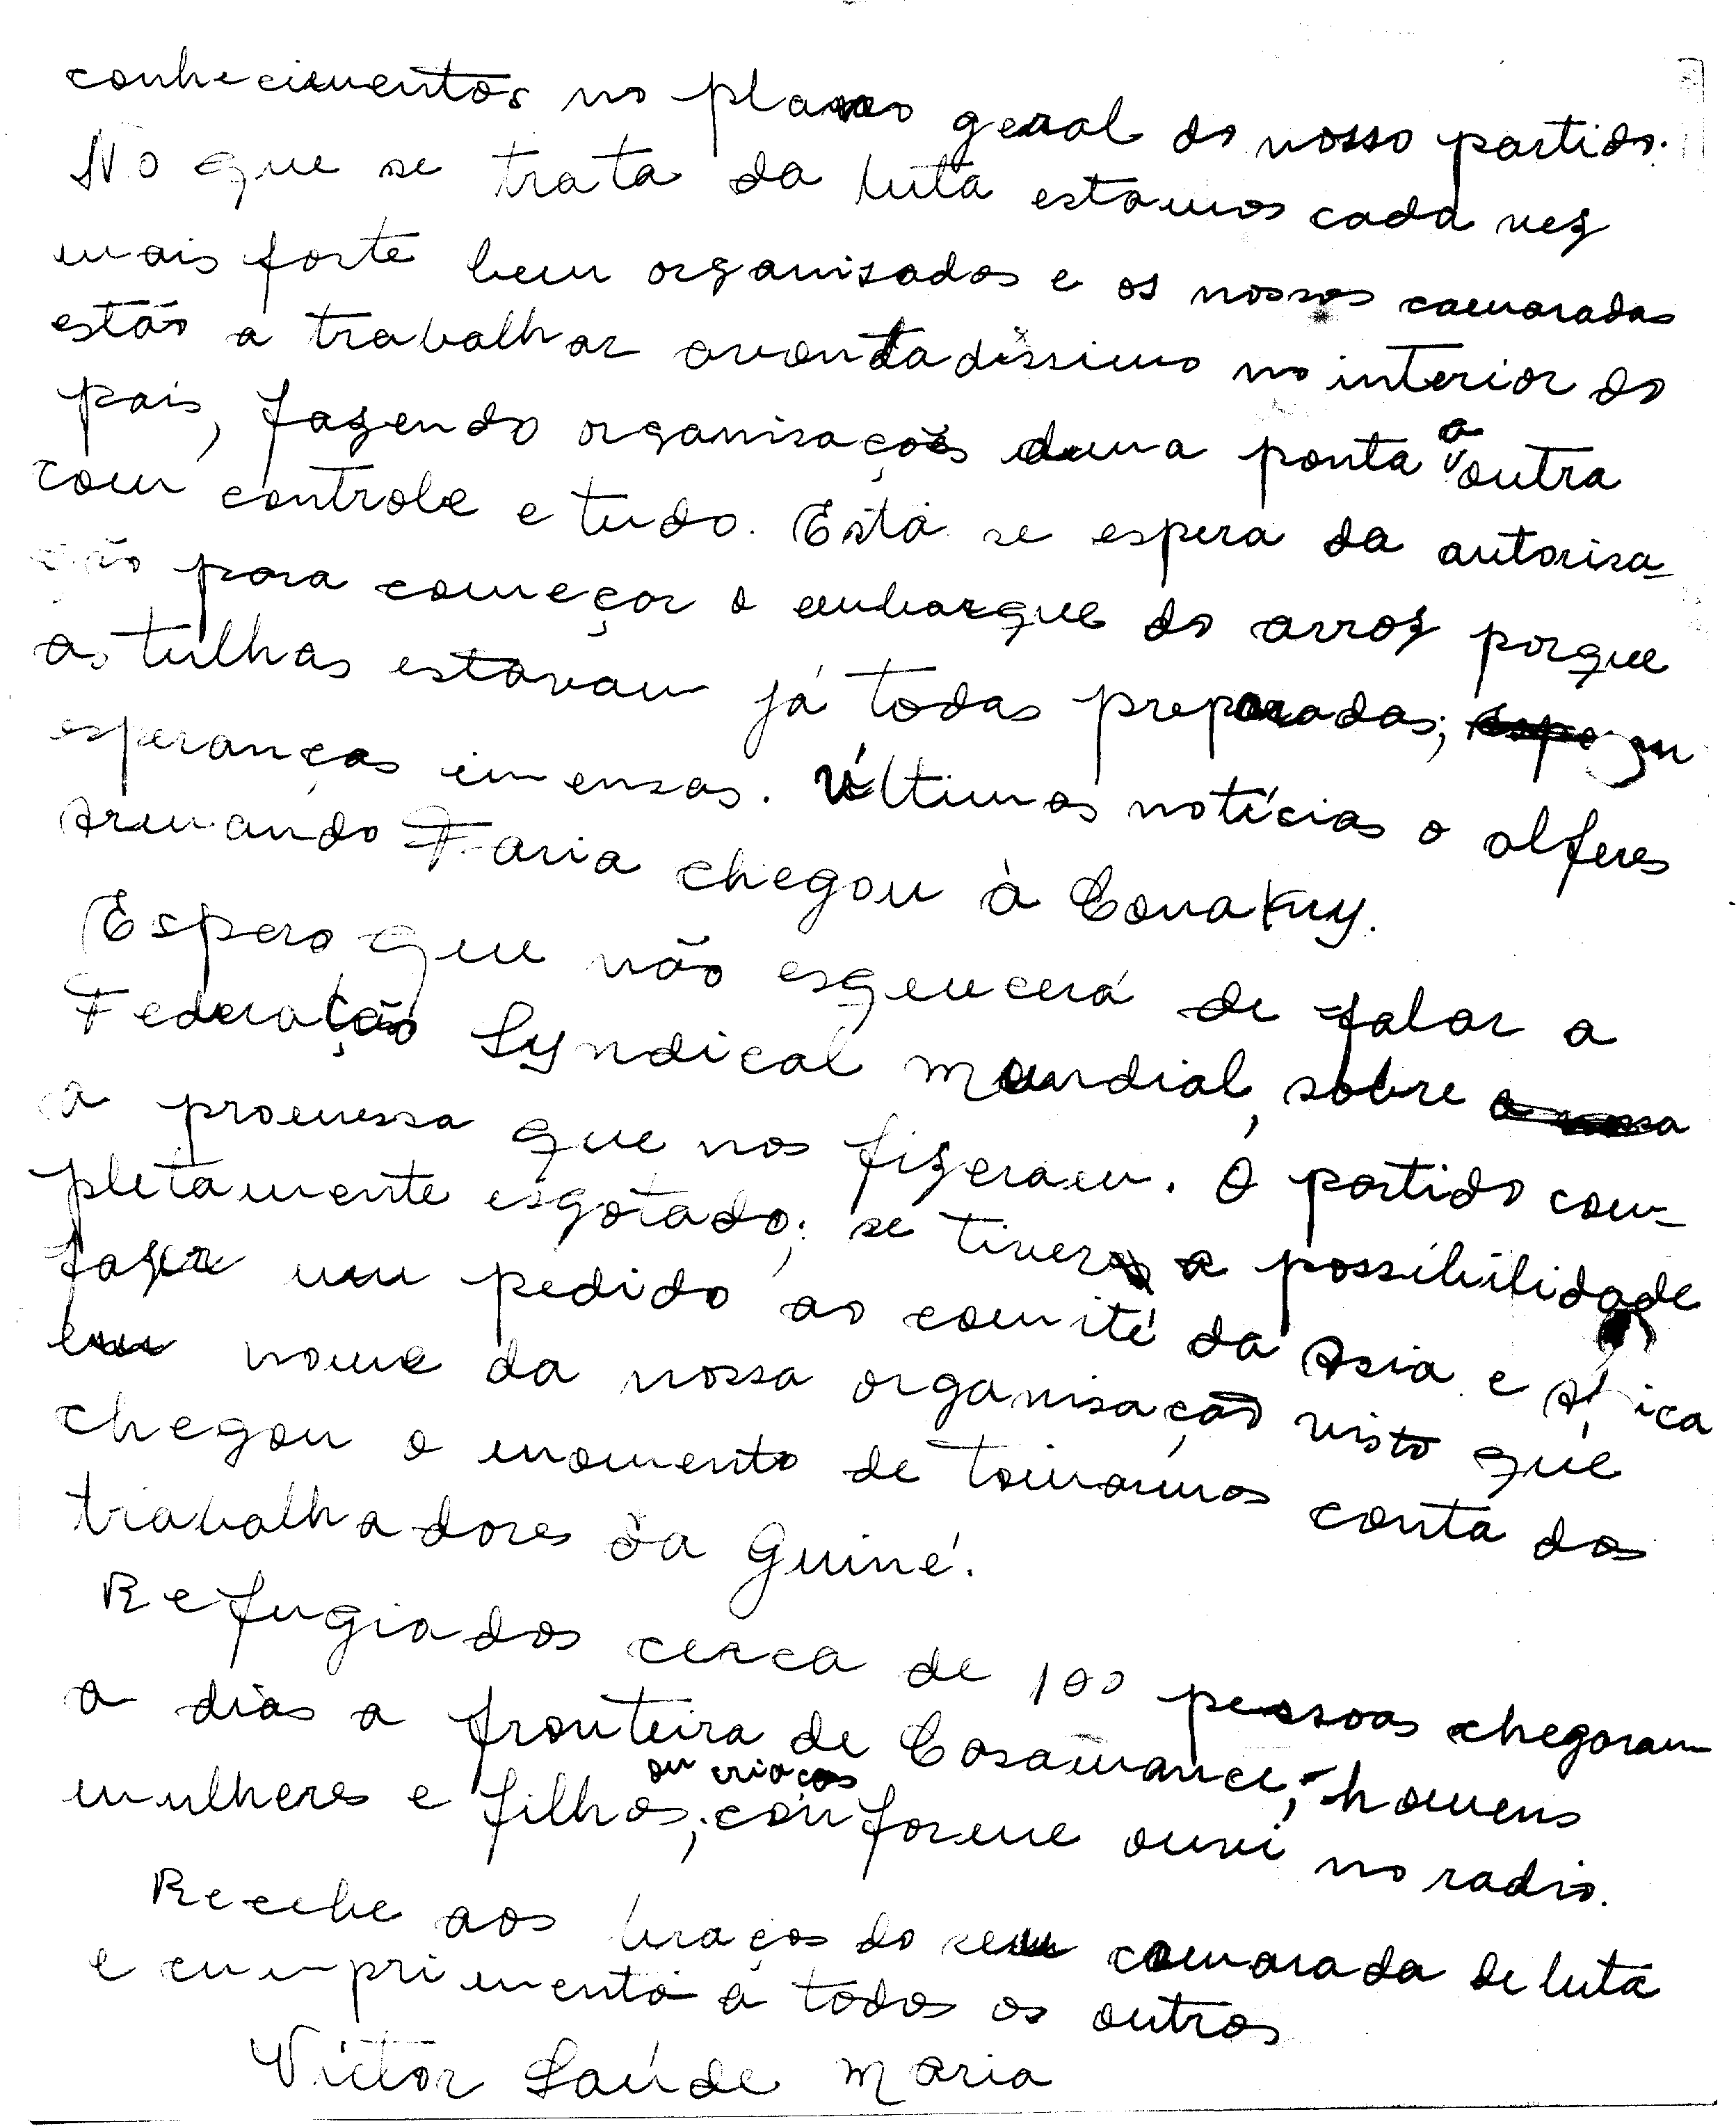 conhecimentos no plano geral do nosso partido.
No que se trata da luta estamos cada vez
mais forte bem organisados e os nossos camaradas
estão a trabalhar avontadíssimo no interior do
país, fazendo organisações duma ponta a outra
com controle e tudo. Está se espera da autorisa-
ção para começar o embarque do arroz porque
as tulhas estavam já todas preparadas;
esperanças imensas. Últimas notícias o alferes
Armando Faria chegou à Conakry.
Espero que não esquecerá de falar a
Federação Syndical Mundial, sobre
a promessa que nos fizeram. O partido com-
pletamente esgotado; se tiver a possibilidade
fazer um pedido ao comité da Asia e Africa
em nome da nossa organisação visto que
chegou o momento de tomarmos conta dos
trabalhadores da Guiné.
Refugiados cerca de 100 pessoas chegaram
a dias a fronteira de Casamance, homens
mulheres e filhos, ou criaças conforme ouvi no radio.
Recebe aos braços do seu camarada de luta
e cumprimento a todos os outros
Victor Saúde Maria